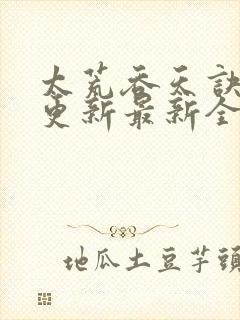 太荒吞天诀
更新最新全
地瓜土豆芋頭